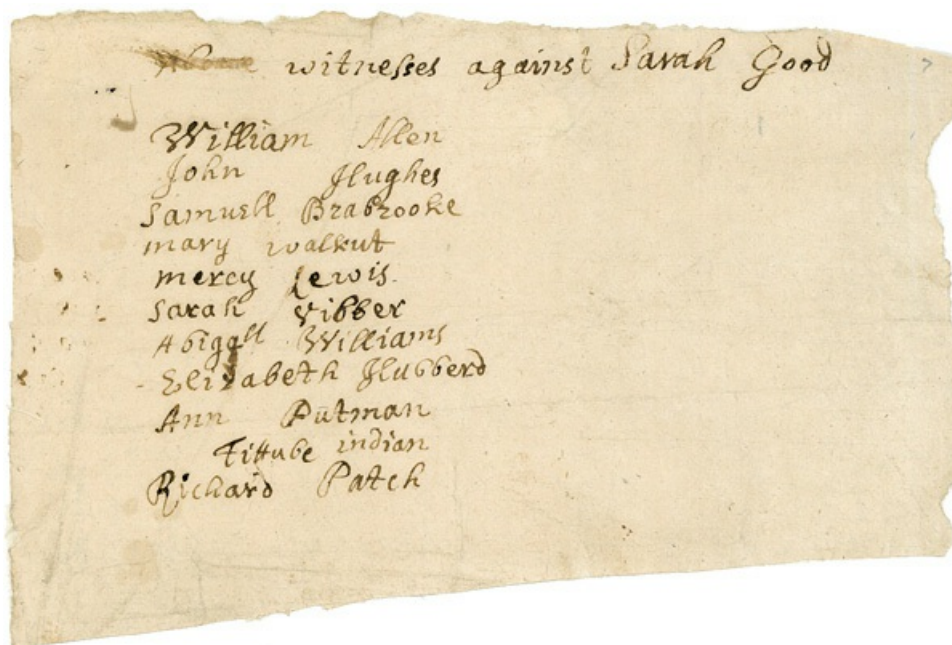 witnesses against Sarah Good
William Allen
John Hughes
Samuell Brabrooke
mary walkut
mercy Lewis.
Sarah vibber
Abigall Williams
Elizabeth Hubberd
Ann Putman
Tittube indian
Richard Patch